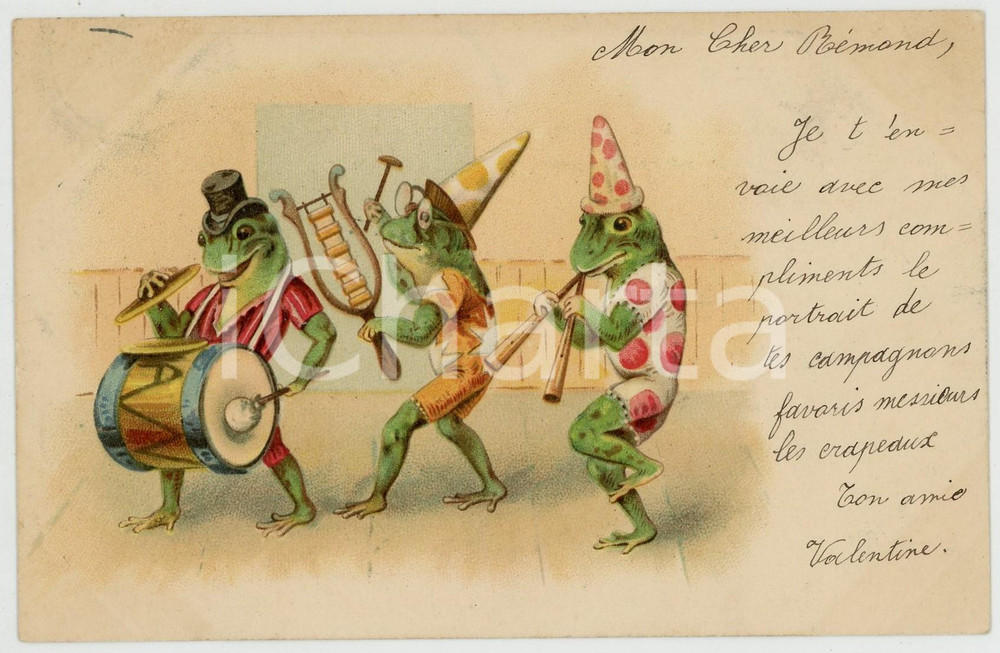 Mon Cher Rémond,
Je t'en=
voie avec mes
meilleurs com=
pliments le
portrait de
tes campagnons
favoris messieurs
les crapeaux
Ton amie
Valentine.
iCharta